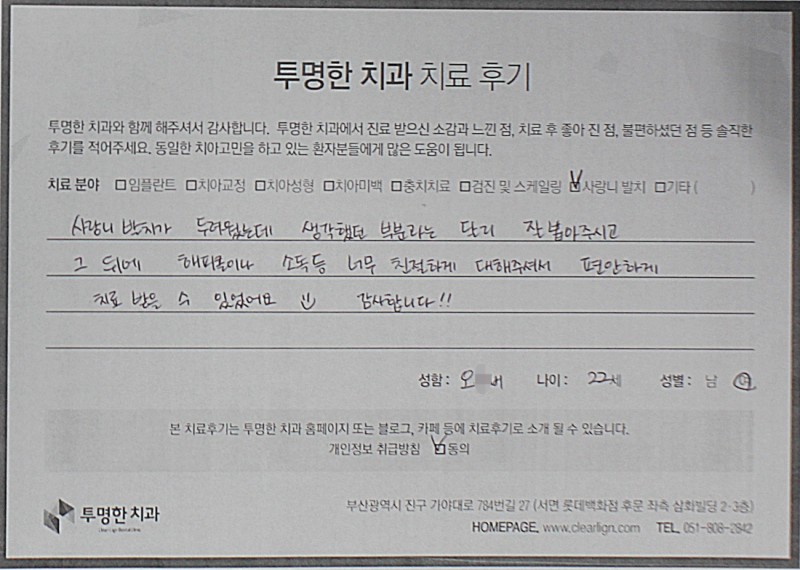 투명한 치과 치료 후기
투명한 치과와 함께 해주셔서 감사합니다. 투명한 치과에서 진료 받으신 소감과 느낀 점, 치료 후 좋아 진 점, 불편하셨던 점 등 솔직한
후기를 적어주세요. 동일한 치아고민을 하고 있는 환자분들에게 많은 도움이 됩니다.
치료 분야 □임플란트 □치아교정 □치아성형 □치아미백 □충치치료 □검진 및 스케일링 ☑사랑니 발치 □기타 ( )
사랑니 발치가 두려웠는데 생각했던 부분과는 달리 잘 뽑아주시고
그 뒤에 해피콜이나 소독등 너무 친절하게 대해주셔서 편안하게
치료 받을 수 있었어요 감사합니다!!
성함: 오 나이: 22세 성별: 남 여
본 치료후기는 투명한 치과 홈페이지 또는 블로그, 카페 등에 치료후기로 소개 될 수 있습니다.
개인정보 취급방침 ☑동의
투명한 치과
부산광역시 진구 가야대로 784번길 27 (서면 롯데백화점 후문 좌측 삼화빌딩 2-3층)
HOMEPAGE. www.clearlign.com TEL. 051-808-2842